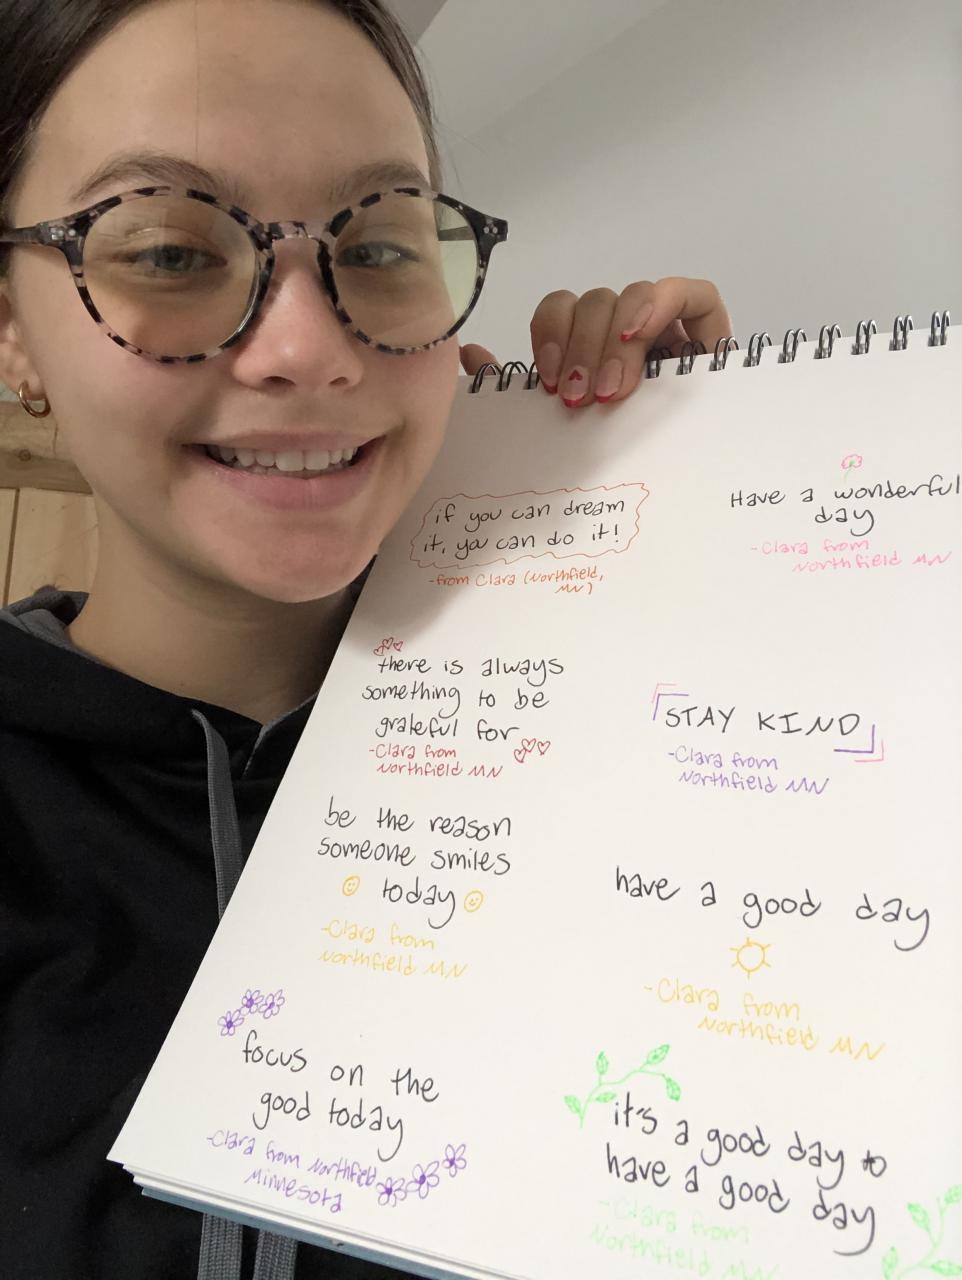 if you can dream
it, you can do it!
-from Clara (Northfield,
MN)
Have a wonderful
day
-Clara from
Northfield MN
there is always
something to be
grateful for
-Clara from
Northfield MN
STAY KIND
-Clara from
Northfield MN
be the reason
someone smiles
today
-Clara from
Northfield MN
have a good day
-Clara from
Northfield MN
focus on the
good today
-Clara from Northfield
Minnesota
it's a good day to
have a good day
-Clara from
Northfield MN